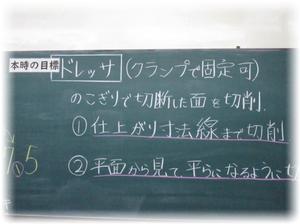 本時の目標 ドレッサ (クランプで固定可)
のこぎりで切断した面を切削.
① 仕上がり寸法線まで切削
② 平面から見て平らになるように
5